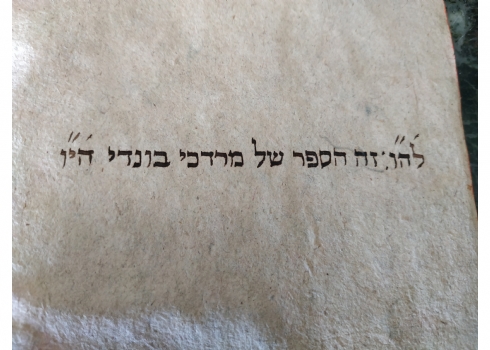 לה״ו זה הספר של מרדכי בונדי הי״ו